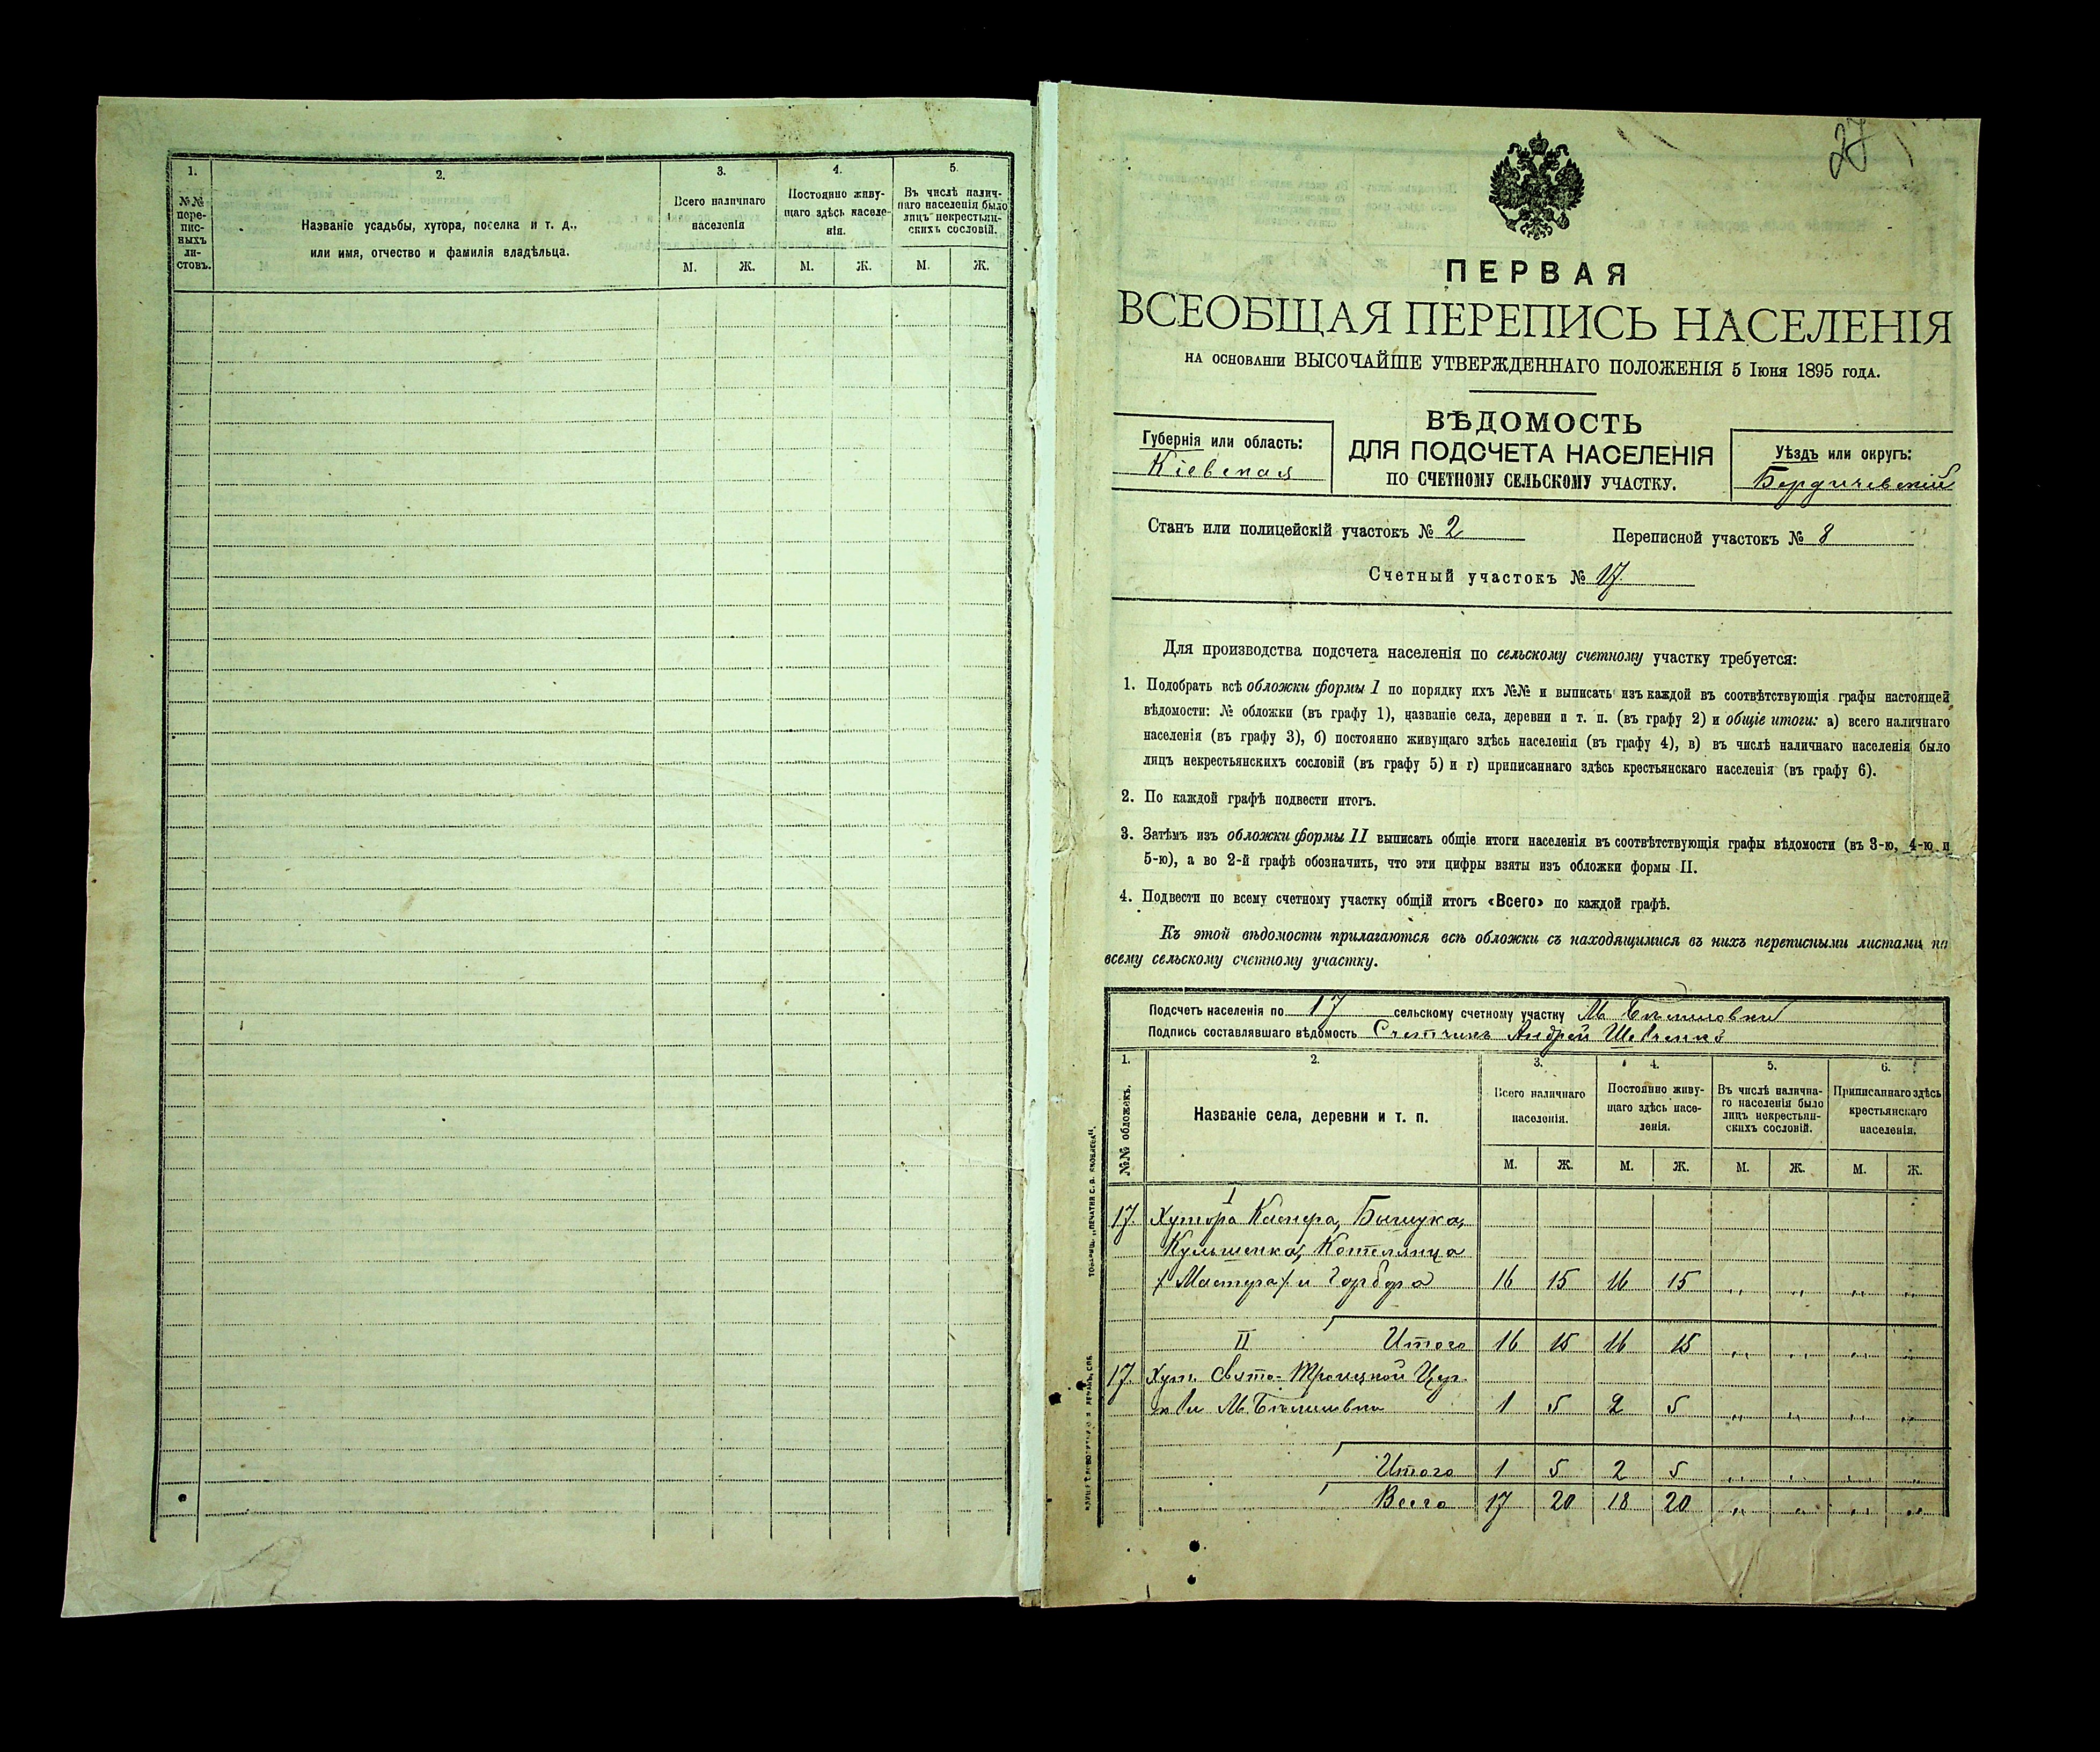 1.
2.
3.
4.
5.
№№ пере-
пис-
ныхъ
ли-
стовъ.
Названіе усадьбы, хутора, поселка и т. д.,
или имя, отчество и фамилія владѣльца.
Всего наличнаго
населенія
Постоянно живу-
щаго здѣсь населе-
нія.
Въ числѣ налич-
наго населенія было
лицъ некрестьян-
скихъ сословій.
М. Ж. М. Ж. М. Ж.
27
ПЕРВАЯ
ВСЕОБЩАЯ ПЕРЕПИСЬ НАСЕЛЕНІЯ
НА ОСНОВАНІИ ВЫСОЧАЙШЕ УТВЕРЖДЕННАГО ПОЛОЖЕНІЯ 5 Іюня 1895 ГОДА.
Губернія или область:
Кіевская
ВѢДОМОСТЬ
ДЛЯ ПОДСЧЕТА НАСЕЛЕНІЯ
ПО СЧЕТНОМУ СЕЛЬСКОМУ УЧАСТКУ.
Уѣздъ или округъ:
Бердичевскій
Станъ или полицейскій участокъ № 2
Переписной участокъ № 8
Счетный участокъ № 17.
Для производства подсчета населенія по сельскому счетному участку требуется:
1. Подобрать всѣ обложки формы I по порядку ихъ №№ и выписать изъ каждой въ соотвѣтствующія графы настоящей
вѣдомости: № обложки (въ графу 1), названіе села, деревни и т. п. (въ графу 2) и общіе итоги: а) всего наличнаго
населенія (въ графу 3), б) постоянно живущаго здѣсь населенія (въ графу 4), в) въ числѣ наличнаго населенія было
лицъ некрестьянскихъ сословій (въ графу 5) и г) приписаннаго здѣсь крестьянскаго населенія (въ графу 6).
2. По каждой графѣ подвести итогъ.
3. Затѣмъ изъ обложки формы II выписать общіе итоги населенія въ соотвѣтствующія графы вѣдомости (въ 3-ю, 4-ю и
5-ю), а во 2-й графѣ обозначить, что эти цифры взяты изъ обложки формы II.
4. Подвести по всему счетному участку общій итогъ «Всего» по каждой графѣ.
Къ этой вѣдомости прилагаются всѣ обложки съ находящимися въ нихъ переписными листами по
всему сельскому счетному участку.
Подсчетъ населенія по 17 сельскому счетному участку М. Бѣлиловки
Подпись составлявшаго вѣдомость Счетчикъ Андрей Шевченко
1.
2.
3.
4.
5.
6.
№№ обложекъ.
Названіе села, деревни и т. п.
Всего наличнаго
населенія.
Постоянно живу-
щаго здѣсь насе-
ленія.
Въ числѣ налична-
го населенія было
лицъ некрестьян-
скихъ сословій.
Приписаннаго здѣсь
крестьянскаго
населенія.
М. Ж. М. Ж. М. Ж. М. Ж.
I
17. Хутора
Котелянца
/Мастера/ и 16 15 16 15 " " " "
II Итого 16 15 16 15 " " " "
17. Хут. Свято-Троицкой Цер
кви М. Бѣлиловки 1 5 2 5 " " " "
Итого 1 5 2 5 " " " "
Всего 17 20 18 20 " " " "